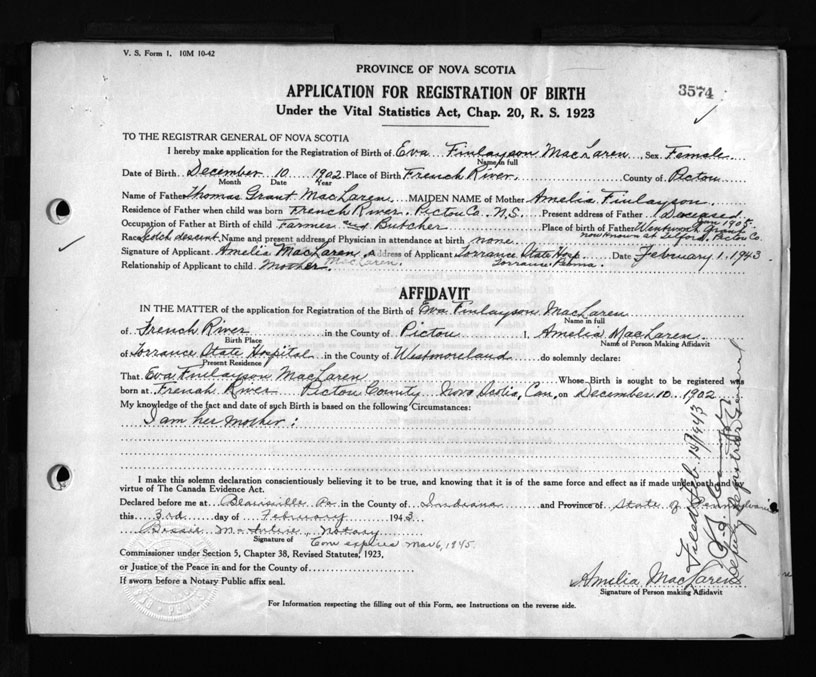 V. S. Form 1. 10M 10-42
PROVINCE OF NOVA SCOTIA
APPLICATION FOR REGISTRATION OF BIRTH
3574
Under the Vital Statistics Act, Chap. 20, R. S. 1923
TO THE REGISTRAR GENERAL OF NOVA SCOTIA
I hereby make application for the Registration of Birth of Eva Finlayson MacLaren, Sex Female
Name in full
Date of Birth December 10 1902 Place of Birth French River. County of Pictou
Month Date Year
Name of Father Thomas Grant MacLaren MAIDEN NAME of Mother Amelia Finlayson
Residence of Father when child was born French River. Pictou Co. N.S. Present address of Father Deceased
Jan 1905
Occupation of Father at Birth of child Farmer and Butcher Place of birth of Father Wentworth Grant
now known as Telford, Pictou Co.
Race Scotch descent. Name and present address of Physician in attendance at birth none.
Signature of Applicant Amelia MacLaren. Address of Applicant Torrance State Hosp. Date February 1. 1943
Relationship of Applicant to child. Mother. MacLaren. Torrance. Penna.
AFFIDAVIT
IN THE MATTER of the application for Registration of the Birth of Eva Finlayson MacLaren
Name in full
of French River in the County of Pictou I, Amelia MacLaren
Birth Place Name of Person Making Affidavit
of Torrance State Hospital in the County of Westmoreland do solemnly declare:
Present Residence
That Eva Finlayson MacLaren Whose Birth is sought to be registered was
born at French River Pictou County Nova Scotia, Can. on December 10. 1902
My knowledge of the fact and date of such Birth is based on the following Circumstances:
I am her mother:
I make this solemn declaration conscientiously believing it to be true, and knowing that it is of the same force and effect as if made under oath and by
virtue of The Canada Evidence Act.
Declared before me at Blairsville Pa in the County of Indiana and Province of State of Pennsylvania
this 3rd day of February 1943
Bessie Notary
Signature of Com expires Mar 6, 1945.
Commissioner under Section 5, Chapter 38, Revised Statutes, 1923,
or Justice of the Peace in and for the County of
If sworn before a Notary Public affix seal.
Amelia MacLaren
Signature of Person making Affidavit
For Information respecting the filling out of this Form, see Instructions on the reverse side.
Filed Feb 15/1943
Deputy Registrar General